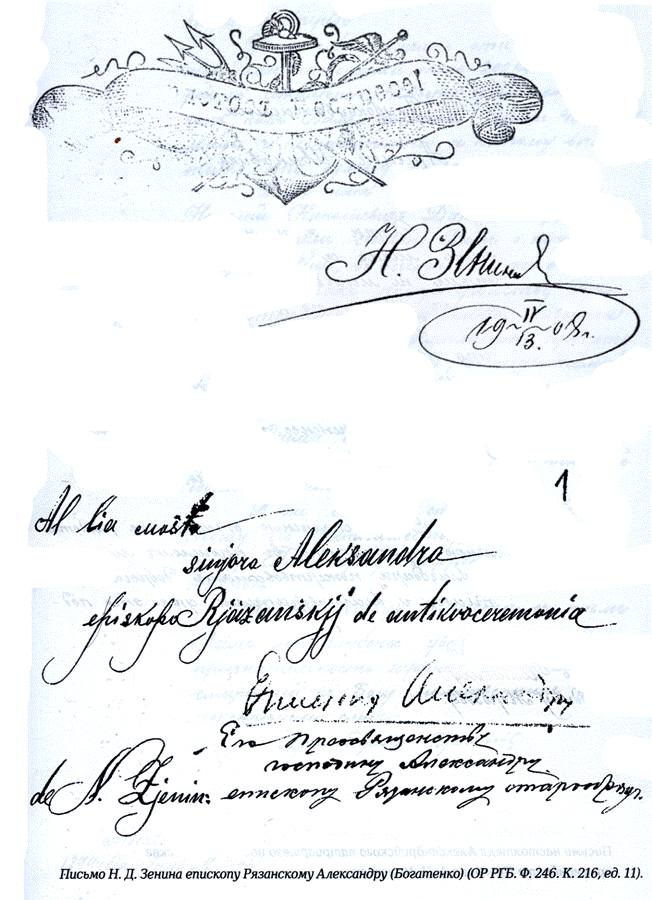 Христосъ Воскресе!
Н. Зенинъ
19 IV 13. 08 г.
1
Al lia moŝta
sinjoro Aleksandra
episkopo Rjazanskij de antikvoceremonia
Епископу Александру
Его Преосвященству
господину Александру
de N. Zjenin: епископу Рязанскому старообряд.
Письмо Н. Д. Зенина епископу Рязанскому Александру (Богатенко) (ОР РГБ. Ф. 246. К. 216, ед. 11).